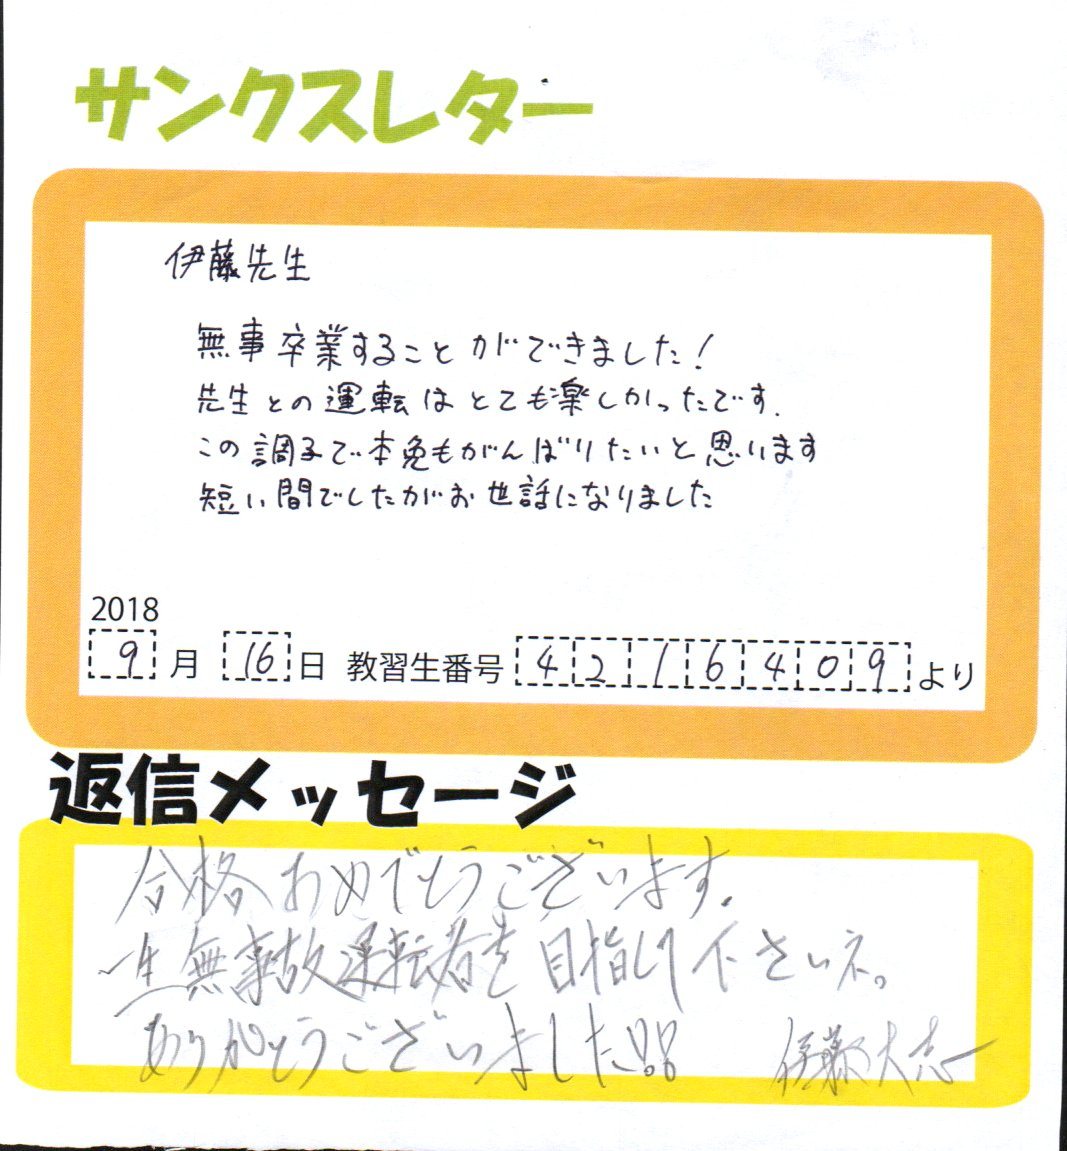 サンクスレター
伊藤先生
無事卒業することができました!
先生との運転はとても楽しかったです.
この調子で本免もがんばりたいと思います
短い間でしたがお世話になりました
2018
9月 16日 教習生番号 4216409 より
返信メッセージ
合格おめでとうございます。
一生無事故運転者を目指して下さいネ。
ありがとうございました!!
伊藤大志